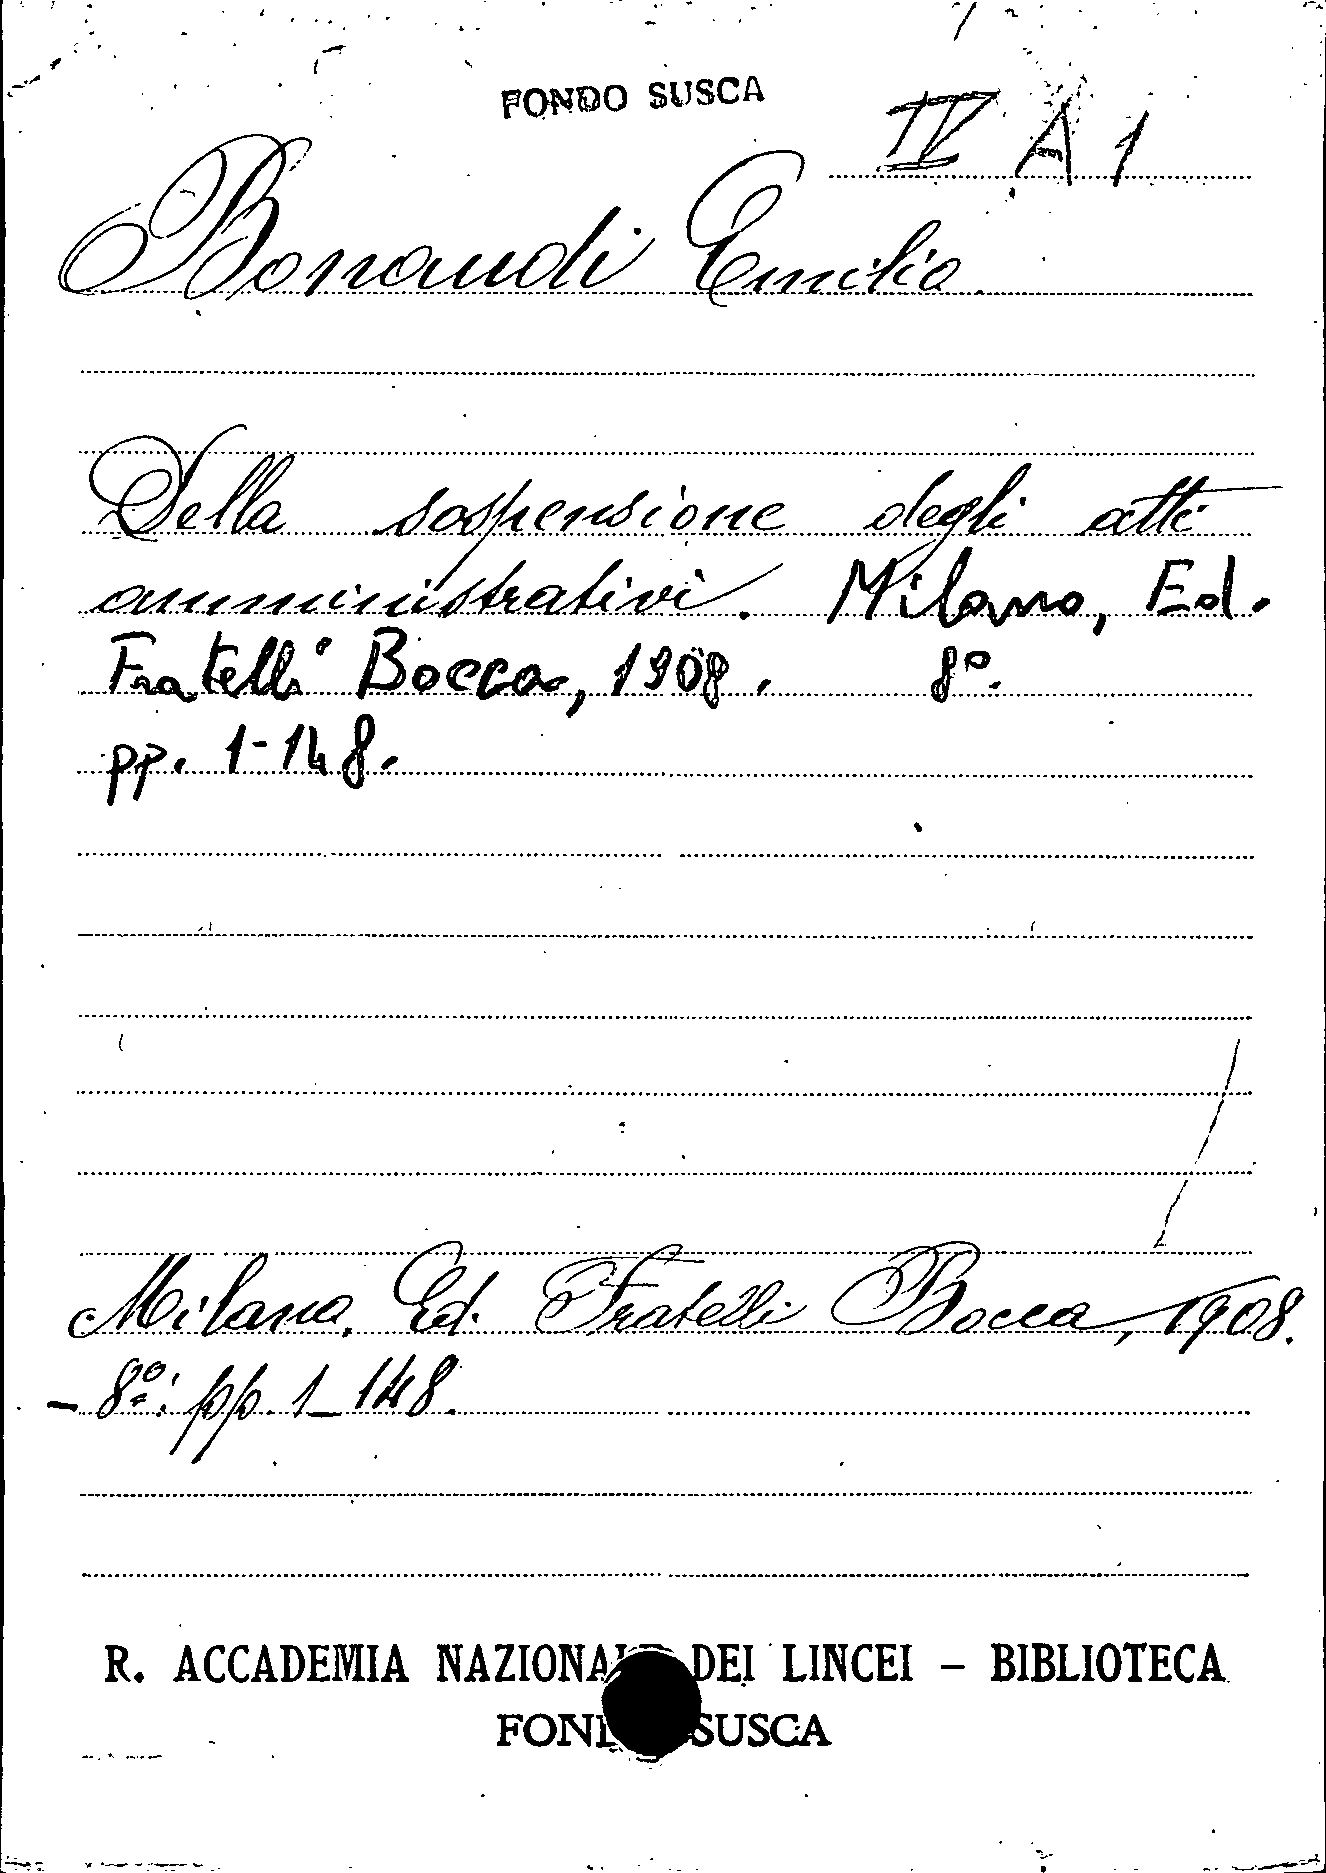 FONDO SUSCA
IV A 1
Bonaudi Emilio.
Della sospensione degli atti
amministrativi. Milano, Ed.
Fratelli Bocca, 1908. 8º.
pp. 1-148.
Milano. Ed. Fratelli Bocca, 1908.
- 8º: pp. 1-148.
R. ACCADEMIA NAZIONALE DEI LINCEI - BIBLIOTECA
FONDO SUSCA